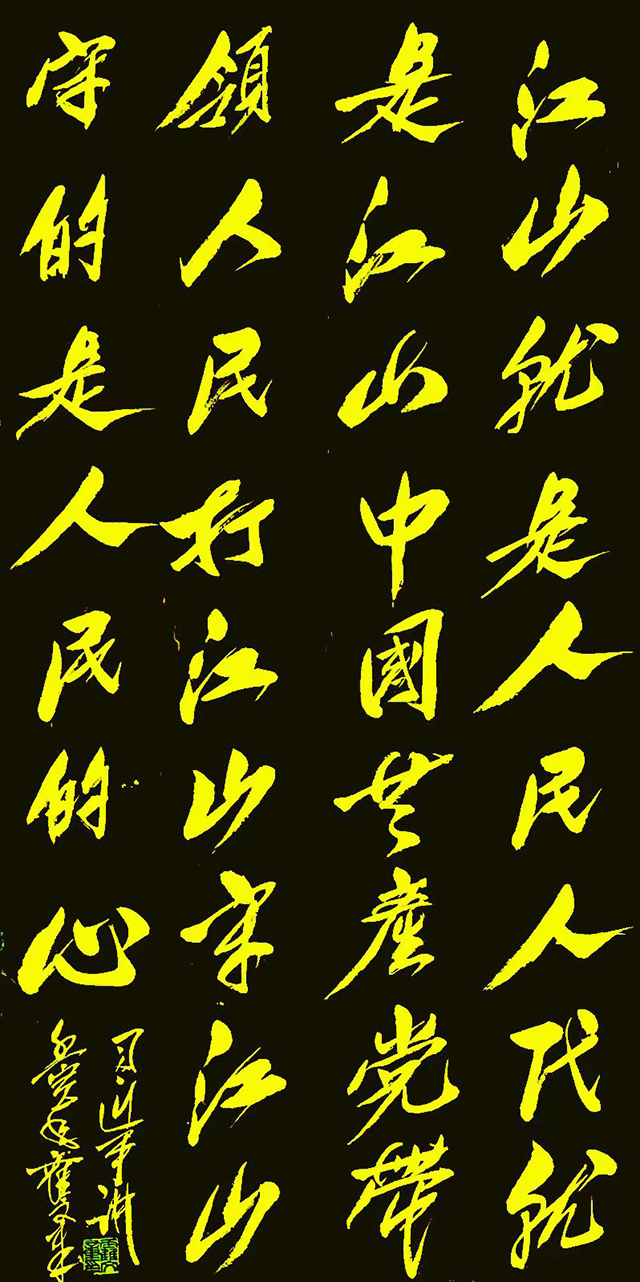 江山就是人民人民就
是江山中國共產党帶
領人民打江山守江山
守的是人民的心